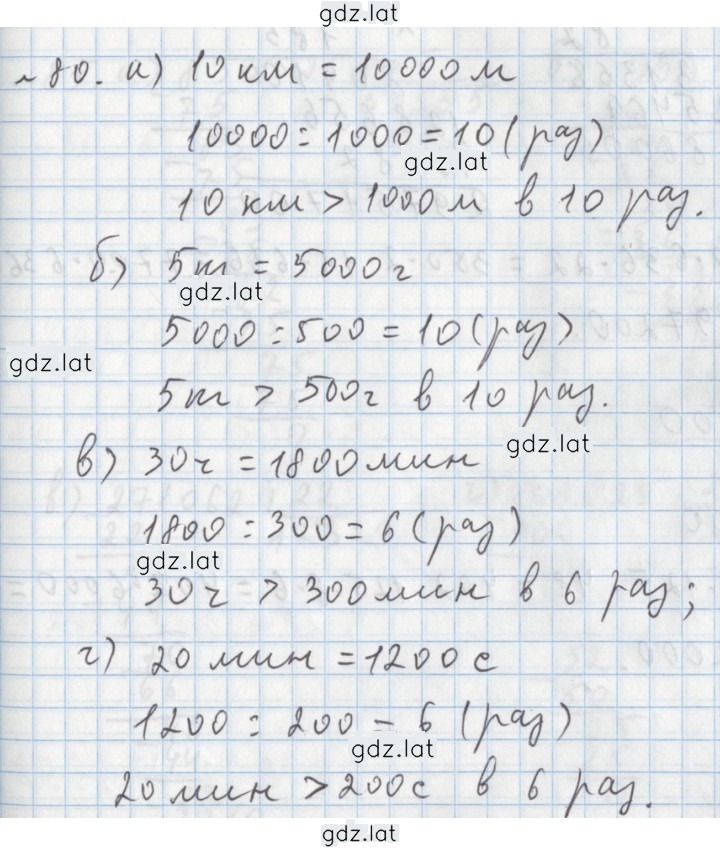 gdz.lat
№ 80. а) 10 км = 10000 м
10000 : 1000 = 10 (раз)
gdz.lat
10 км > 1000 м в 10 раз.
б) 5 кг = 5000 г
gdz.lat
5000 : 500 = 10 (раз)
gdz.lat
5 кг > 500 г в 10 раз.
gdz.lat
в) 30 ч = 1800 мин
1800 : 300 = 6 (раз)
gdz.lat
30 ч > 300 мин в 6 раз;
г) 20 мин = 1200 с
1200 : 200 = 6 (раз)
gdz.lat
20 мин > 200 с в 6 раз.
gdz.lat